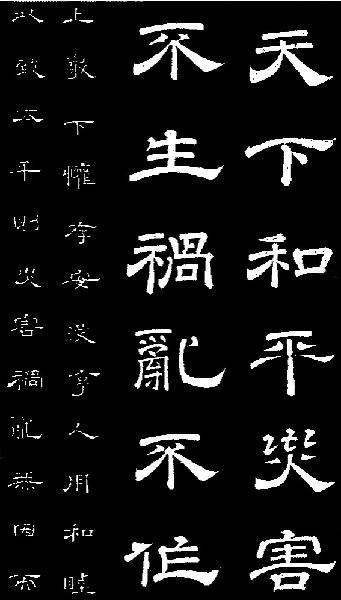 天下和平災害
不生禍亂不作
上敬下懽存安沒享人用和睦
以致太平則災害禍亂無因而